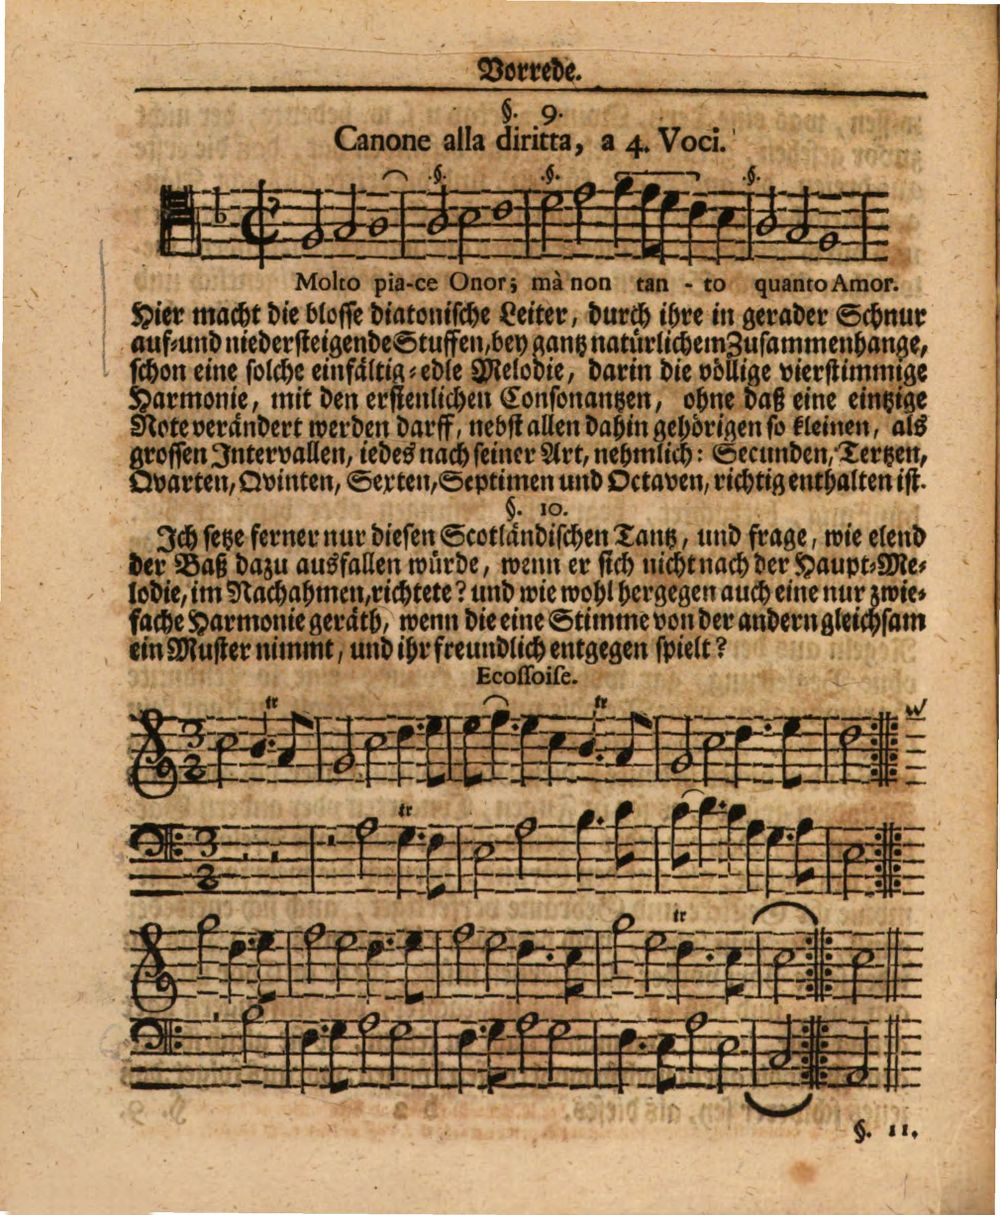 Vorrede.
§. 9.
Canone alla diritta, a 4. Voci.
.§. .§. §.
Molto pia-ce Onor; mà non tan - to quanto Amor.
Hier macht die blosse diatonische Leiter, durch ihre in gerader Schnur
auf-und niedersteigende Stuffen, bey gantz natürlichem Zusammenhange,
schon eine solche einfältig-edle Melodie, darin die völlige vierstimmige
Harmonie, mit den ersienlichen Consonantzen, ohne daß eine eintzige
Note verändert werden darff, nebst allen dahin gehörigen so kleinen, als
grossen Intervallen, iedes nach seiner Art, nehmlich: Secunden, Tertzen,
Qvarten, Qvinten, Sexten, Septimen und Octaven, richtig enthalten ist.
§. 10.
Ich setze ferner nur diesen Scotländischen Tantz, und frage, wie elend
der Baß dazu ausfallen würde, wenn er sich nicht nach der Haupt-Me-
lodie, im Nachahmen, richtete? und wie wohl hergegen auch eine nur zwie-
fache Harmonie geräth, wenn die eine Stimme von der andern gleichsam
ein Muster nimmt, und ihr freundlich entgegen spielt?
Ecossoise.
tr tr
3 2
tr
3 2
tr
§. 11.